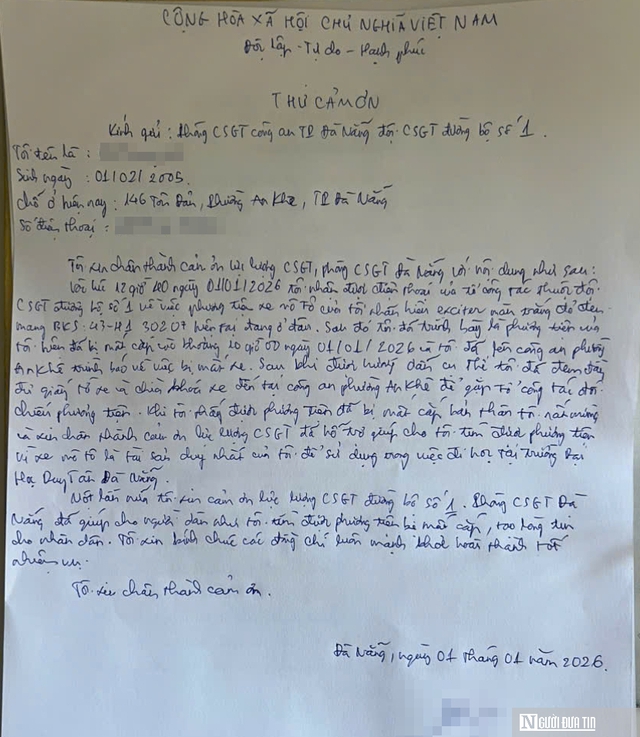 CỘNG HÒA XÃ HỘI CHỦ NGHĨA VIỆT NAM
Độc lập - Tự do - Hạnh phúc
THƯ CẢM ƠN
Kính gửi: Phòng CSGT công an TP Đà Nẵng đội CSGT đường bộ số 1.
Tôi tên là :
Sinh ngày : 01/02/2005.
Chỗ ở hiện nay : 146 Tôn Đản, Phường An Khê, TP Đà Nẵng
Số điện thoại :
Tôi xin chân thành cảm ơn lực lượng CSGT, phòng CSGT Đà Nẵng với nội dung như sau:
Vào lúc 12 giờ 40 ngày 01/01/2026 tôi nhận được điện thoại của tổ công tác thuộc đội
CSGT đường bộ số 1 về việc phương tiện xe mô tô của tôi nhãn hiệu exciter màu trắng đỏ đen
mang BKS: 43-H1 30207 hiện tại đang ở đâu. Sau đó tôi đã trình bày là phương tiện của
tôi hiện đã bị mất cắp vào khoảng 10 giờ 00 ngày 01/01/2026 và tôi đã lên công an phường
An Khê trình báo về việc bị mất xe. Sau khi được hướng dẫn cụ thể tôi đã đem đầy
đủ giấy tờ xe và chìa khóa xe đến tại công an phường An Khê để gặp tổ công tác đối
chiếu phương tiện. Khi tôi thấy được phương tiện đã bị mất cắp bản thân tôi rất mừng
và xin chân thành cảm ơn lực lượng CSGT đã hỗ trợ giúp cho tôi tìm được phương tiện
vì xe mô tô là tài sản duy nhất của tôi để sử dụng trong việc đi học tại trường Đại
Học Duy Tân Đà Nẵng.
Một lần nữa tôi xin cảm ơn lực lượng CSGT đường bộ số 1. Phòng CSGT Đà
Nẵng đã giúp cho người dân như tôi tìm được phương tiện bị mất cắp, tạo lòng tin
cho nhân dân. Tôi xin kính chúc các đồng chí luôn mạnh khỏe hoàn thành tốt
nhiệm vụ.
Tôi xin chân thành cảm ơn.
Đà Nẵng, ngày 01 tháng 01 năm 2026.
NGƯỜI ĐƯA TIN